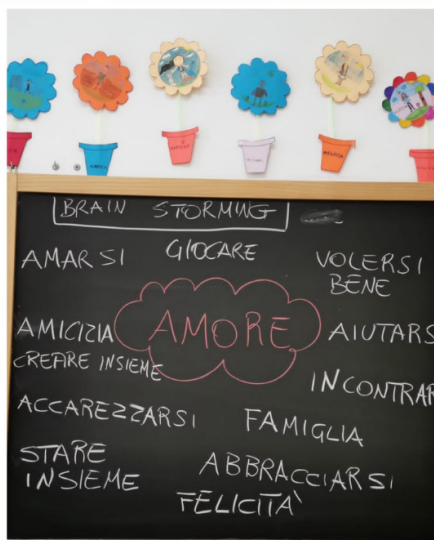 BRAIN STORMING
GIOCARE
AMARSI
VOLERSI
BENE
AMICIZIA
AMORE
AIUTARS
CREARE INSIEME
INCONTRAR
ACCAREZZARSI
FAMIGLIA
STARE
INSIEME
ABBRACCIARSI
FELICITÀ